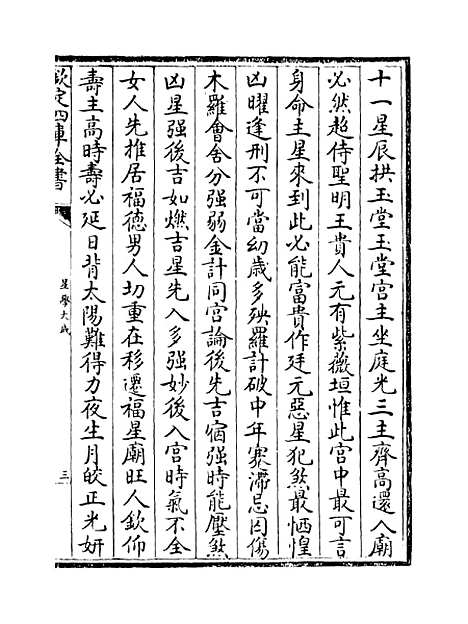 十一星辰拱玉堂玉堂宮主坐庭光三主齊高還入廟
必然超侍聖明王貴人元有紫薇垣惟此宮中最可言
身命主星來到此必能富貴作廷元惡星犯煞最恓惶
凶曜逢刑不可當幼歲多殃羅計破中年寒滯忌囚傷
木羅會舍分強弱金計同宮論後先吉宿強時能壓煞
凶星强後吉如燃吉星先入多强妙後入宮時氣不全
女人先推居福德男人切重在移遷福星廟旺人欽仰
壽主高時壽必延日背太陽難得力夜生月皎正光妍
欽定四庫全書
星學大成
三